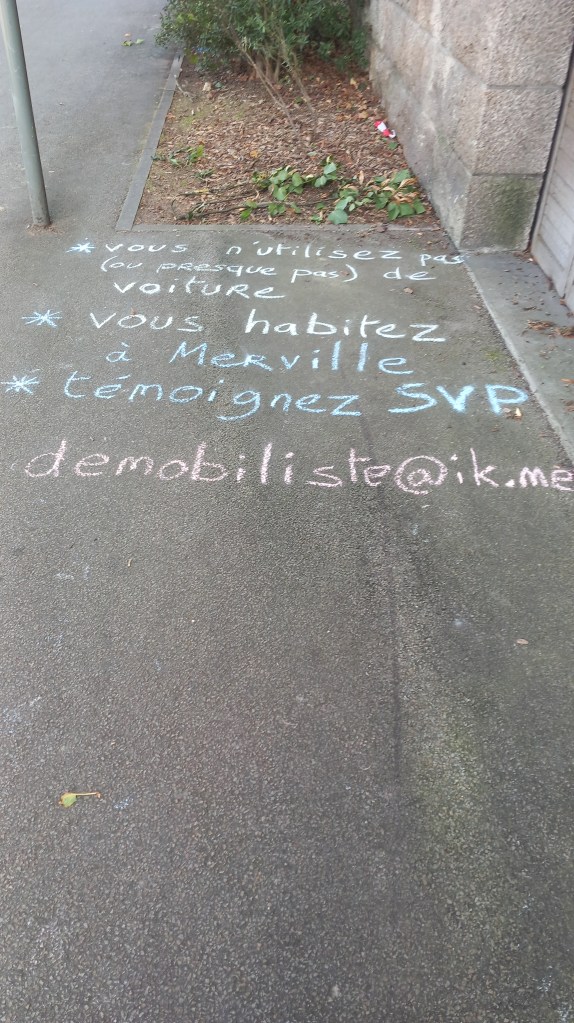 * vous n'utilisez pas
(ou presque pas) de
voiture
* vous habitez
à Merville
* témoignez SVP
démobiliste@ik.me